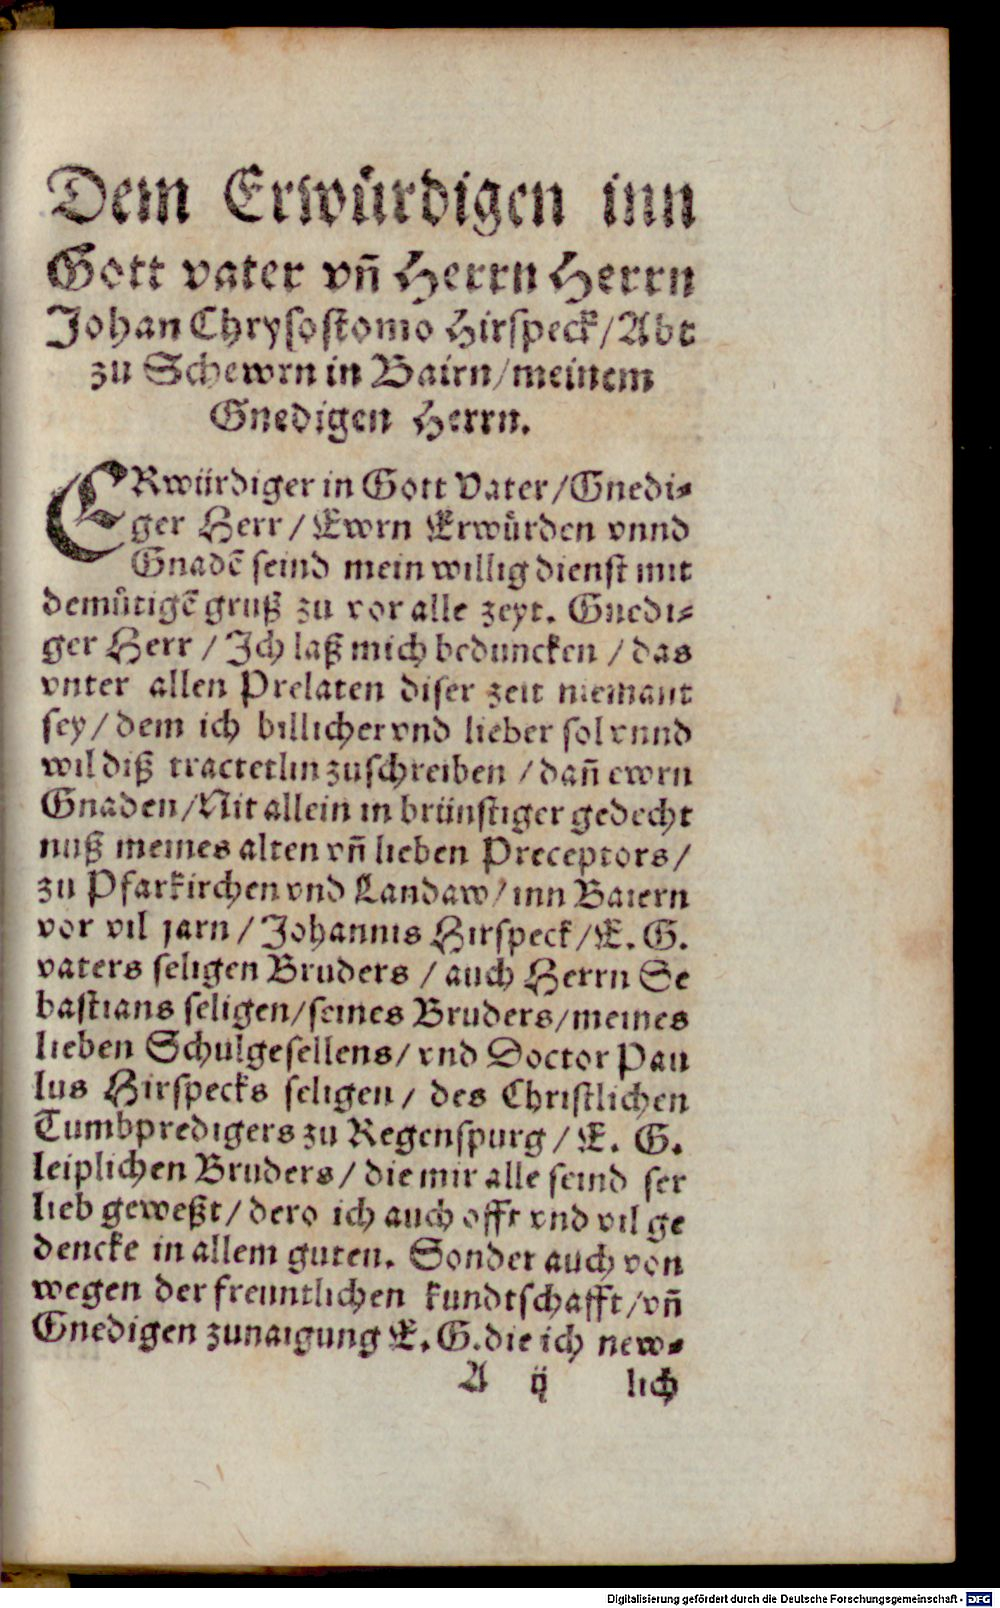 Dem Erwuͤrdigen inn
Gott vater vñ Herrn Herrn
Johan Chrysostomo Hirspeck/Abt
zu Schewrn in Bairn/meinem
Gnedigen Herrn.
ERwürdiger in Gott Vater/Gnedi⸗
ger Herr/Ewrn Erwuͤrden vnnd
Gnadẽ seind mein willig dienst mit
demuͤtigẽ gruß zu vor alle zeyt. Gnedi⸗
ger Herr/Ich laß mich beduncken/das
vnter allen Prelaten diser zeit niemant
sey/dem ich billicher vnd lieber sol vnnd
wil diß tractetlin zuschreiben/dañ ewrn
Gnaden/Nit allein in brünstiger gedecht
nuß meines alten vñ lieben Preceptors/
zu Pfarkirchen vnd Landaw/inn Baiern
vor vil jarn/Johannis Hirspeck/E. G.
vaters seligen Bruders/auch Herrn Se
bastians seligen/seines Bruders/meines
lieben Schulgesellens/vnd Doctor Pau
lus Hirspecks seligen/des Christlichen
Tumbpredigers zu Regenspurg/E. G.
leiplichen Bruders/die mir alle seind ser
lieb geweßt/dero ich auch offt vnd vil ge
dencke in allem guten. Sonder auch von
wegen der freuntlichen kundtschafft/vñ
Gnedigen zunaigung E. G. die ich new⸗
A ij lich
Digitalisierung gefördert durch die Deutsche Forschungsgemeinschaft - DFG